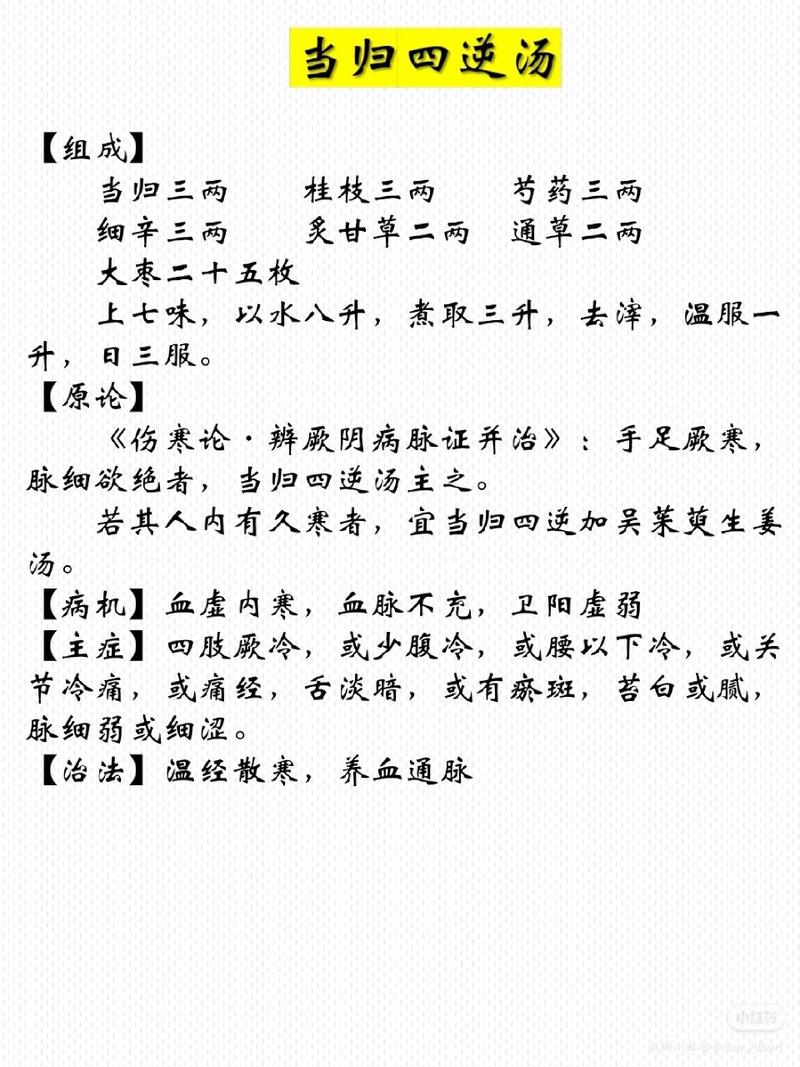 当归四逆汤
【组成】
当归三两 桂枝三两 芍药三两
细辛三两 炙甘草二两 通草二两
大枣二十五枚
上七味，以水八升，煮取三升，去滓，温服一
升，日三服。
【原论】
《伤寒论·辨厥阴病脉证并治》：手足厥寒，
脉细欲绝者，当归四逆汤主之。
若其人内有久寒者，宜当归四逆加吴茱萸生姜
汤。
【病机】血虚内寒，血脉不充，卫阳虚弱
【主症】四肢厥冷，或少腹冷，或腰以下冷，或关
节冷痛，或痛经，舌淡暗，或有瘀斑，苔白或腻，
脉细弱或细涩。
【治法】温经散寒，养血通脉
小红书